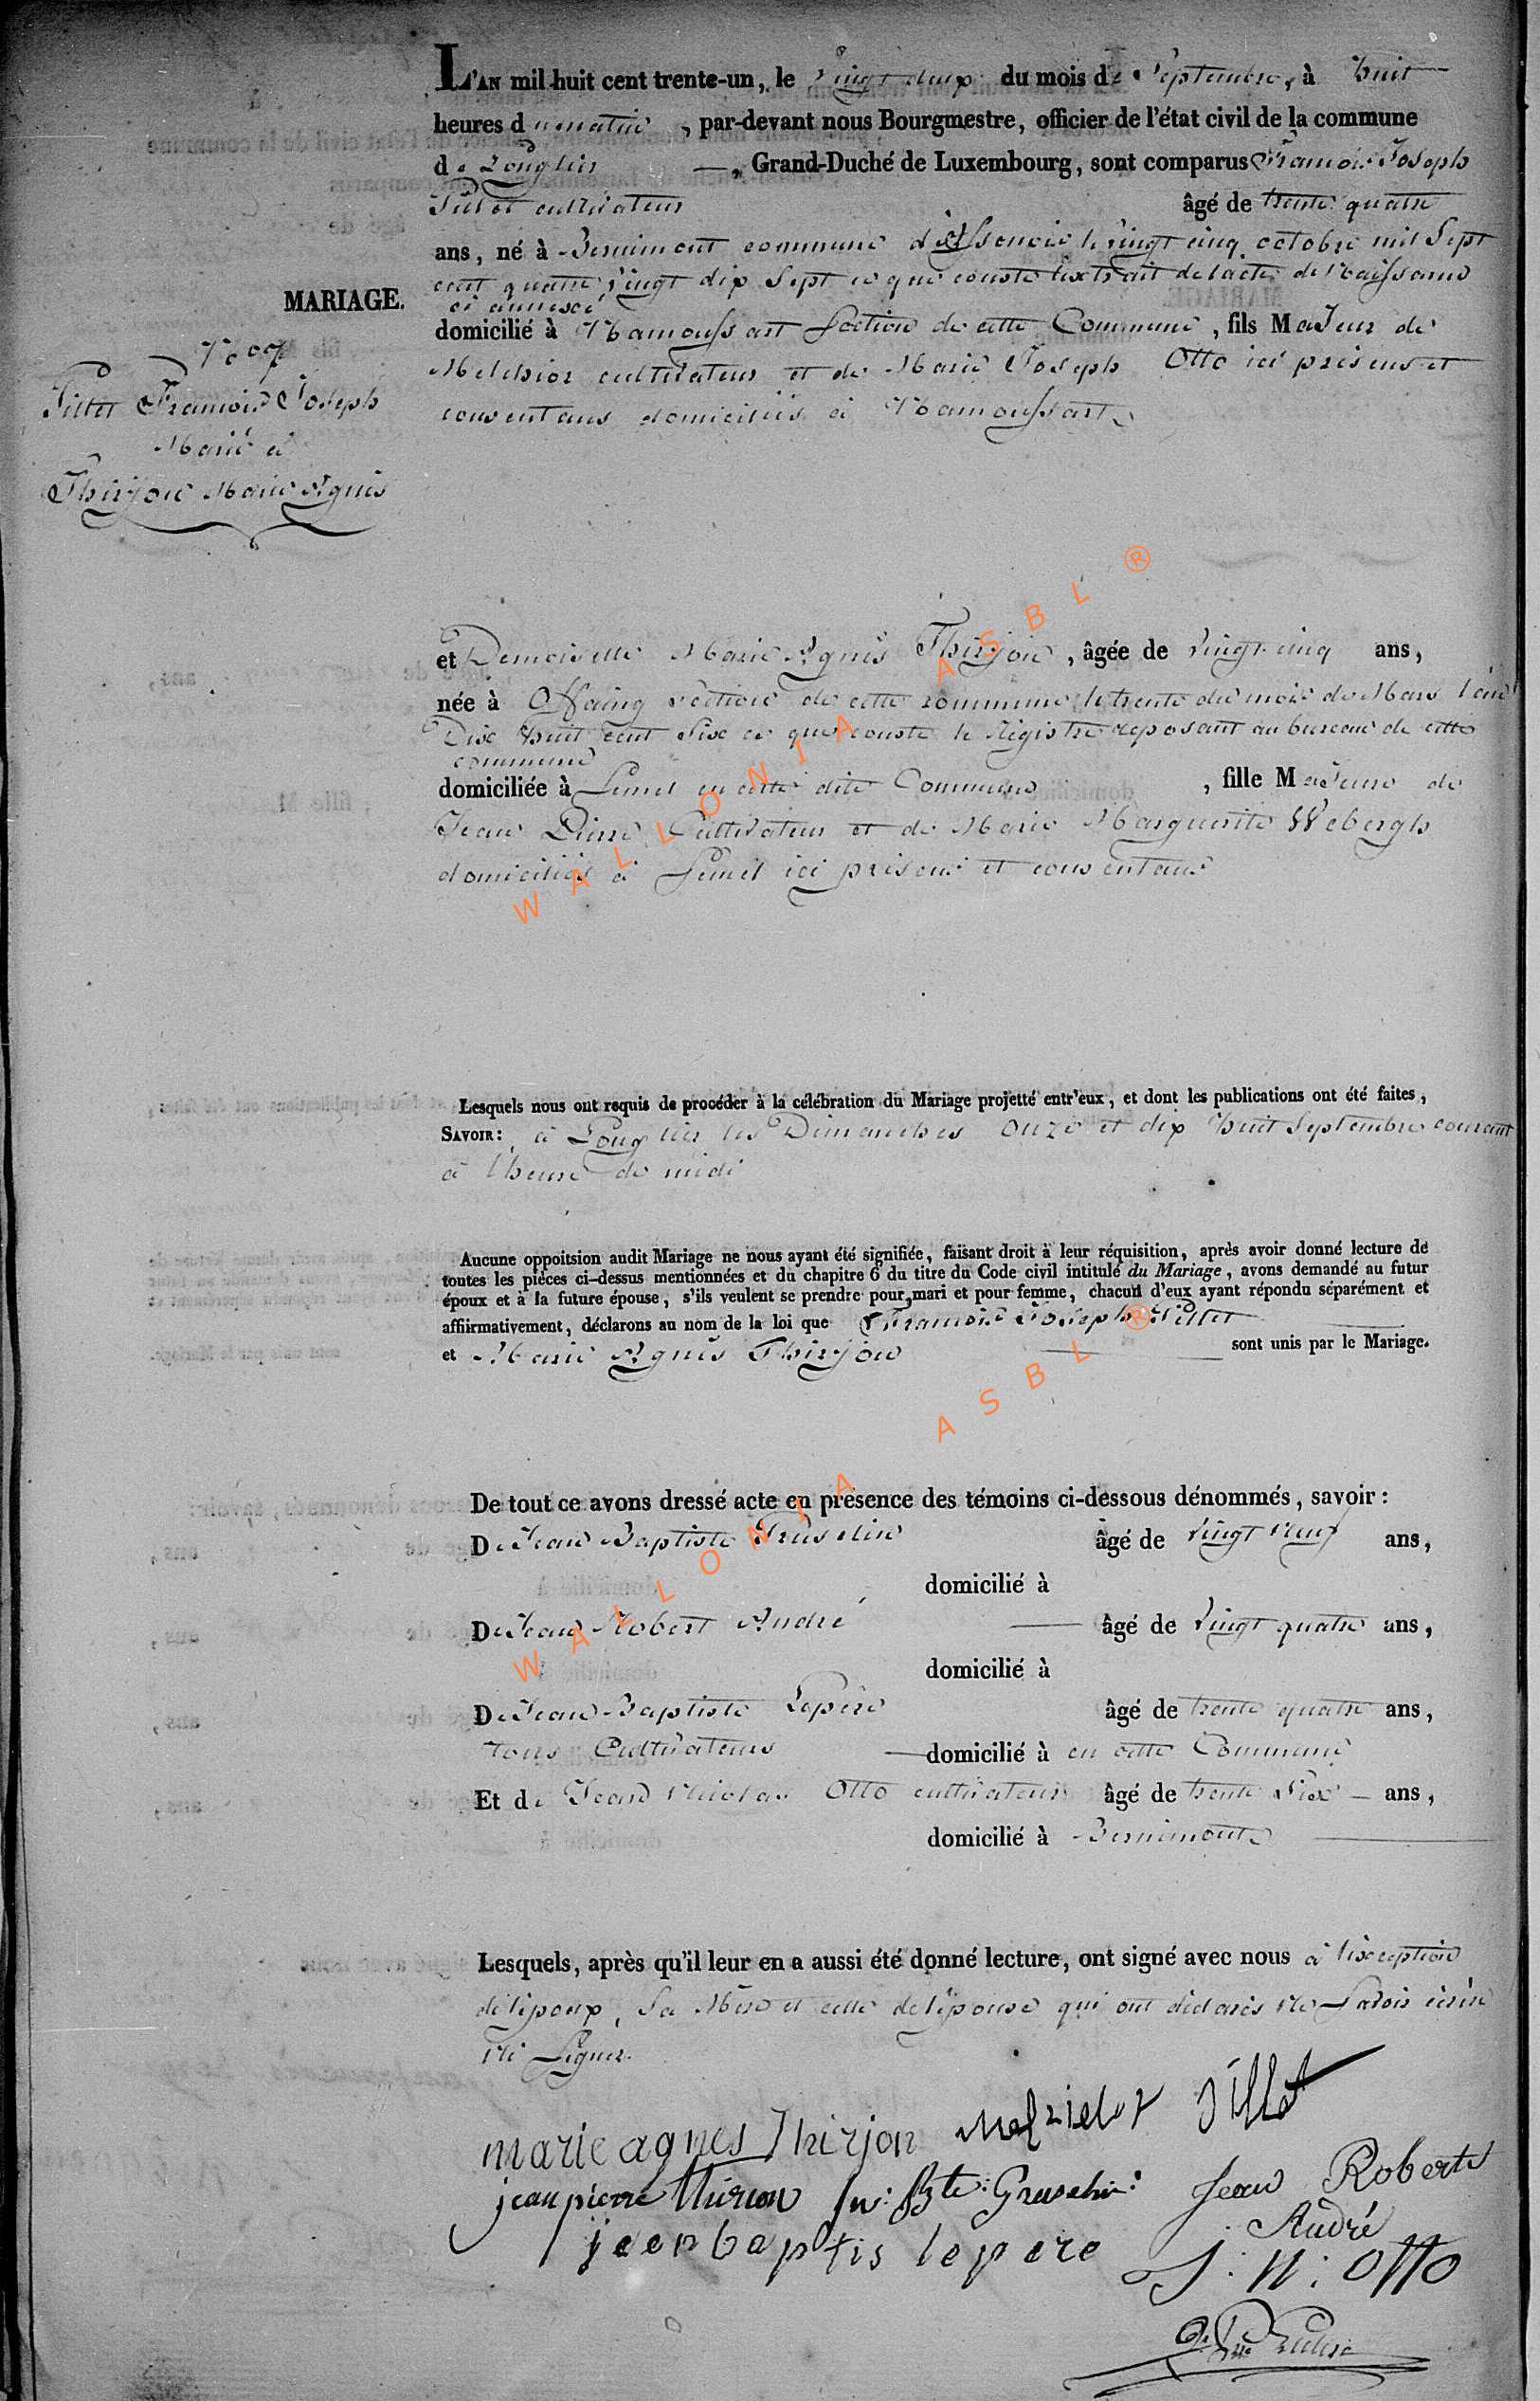 L'AN mil huit cent trente-un, le vingt deux du mois de Septembre, à huit
heures du matin, par-devant nous Bourgmestre, officier de l'état civil de la commune
de Longlier —, Grand-Duché de Luxembourg, sont comparus François Joseph
Pillet cultivateur âgé de trente quatre
ans, né à Bernimont commune d'Assenois le vingt cinq octobre mil Sept
cent quatre vingt dix Sept ce que conste l'extrait de l'acte de Naissance
ci annexé
MARIAGE.
domicilié à Namoussart Section de cette Commune, fils Majeur de
Melchior cultivateur et de Marie Joseph Otto ici présens et
consentans domiciliés à Namoussart
Pillet François Joseph
Marié à
Thirjon Marie Agnès
et Demoiselle Marie Agnès Thirjon, âgée de vingt cinq ans,
née à Offaing section de cette commune le trente du mois de Mars l'an
Dix huit cent Six ce que conste le Régistre reposant au bureau de cette
commune
domiciliée à Lemel en cette dite Commune, fille Majeure de
Jean Pierre Cultivateur et de Marie Marguerite Webergh
domiciliés à Lemel ici présens et consentans
Lesquels nous ont requis de procéder à la célébration du Mariage projetté entr'eux, et dont les publications ont été faites,
SAVOIR: à Longlier les Dimanches onze et dix huit Septembre courant
à l'heure de midi
Aucune oppoitsion audit Mariage ne nous ayant été signifiée, faisant droit à leur réquisition, après avoir donné lecture de
toutes les pièces ci-dessus mentionnées et du chapitre 6 du titre du Code civil intitulé du Mariage, avons demandé au futur
époux et à la future épouse, s'ils veulent se prendre pour mari et pour femme, chacun d'eux ayant répondu séparément et
affiirmativement, déclarons au nom de la loi que François Joseph Pillet
et Marie Agnès Thirjon sont unis par le Mariage.
De tout ce avons dressé acte en présence des témoins ci-dessous dénommés, savoir:
De Jean Baptiste Gruselin âgé de vingt neuf ans,
domicilié à
De Jean Robert André — âgé de vingt quatre ans,
domicilié à
De Jean Baptiste Lepère âgé de trente quatre ans,
tous Cultivateurs — domicilié à en cette Commune
Et de Jean Nicolas Otto cultivateur âgé de trente Six — ans,
domicilié à Bernimont
Lesquels, après qu'il leur en a aussi été donné lecture, ont signé avec nous à l'exception
de l'époux, Sa Mère et celle de l'épouse qui ont déclarés ne Savoir écrire
Ni Signer.
marie agnes Thirjon Melxielor Pillet
jean pierre thirion Jn: Bte: Gruselin: Jean Robert
André
jeenbaptis lepere J: N: Otto
WALLONIA ASBL ®
WALLONIA ASBL ®